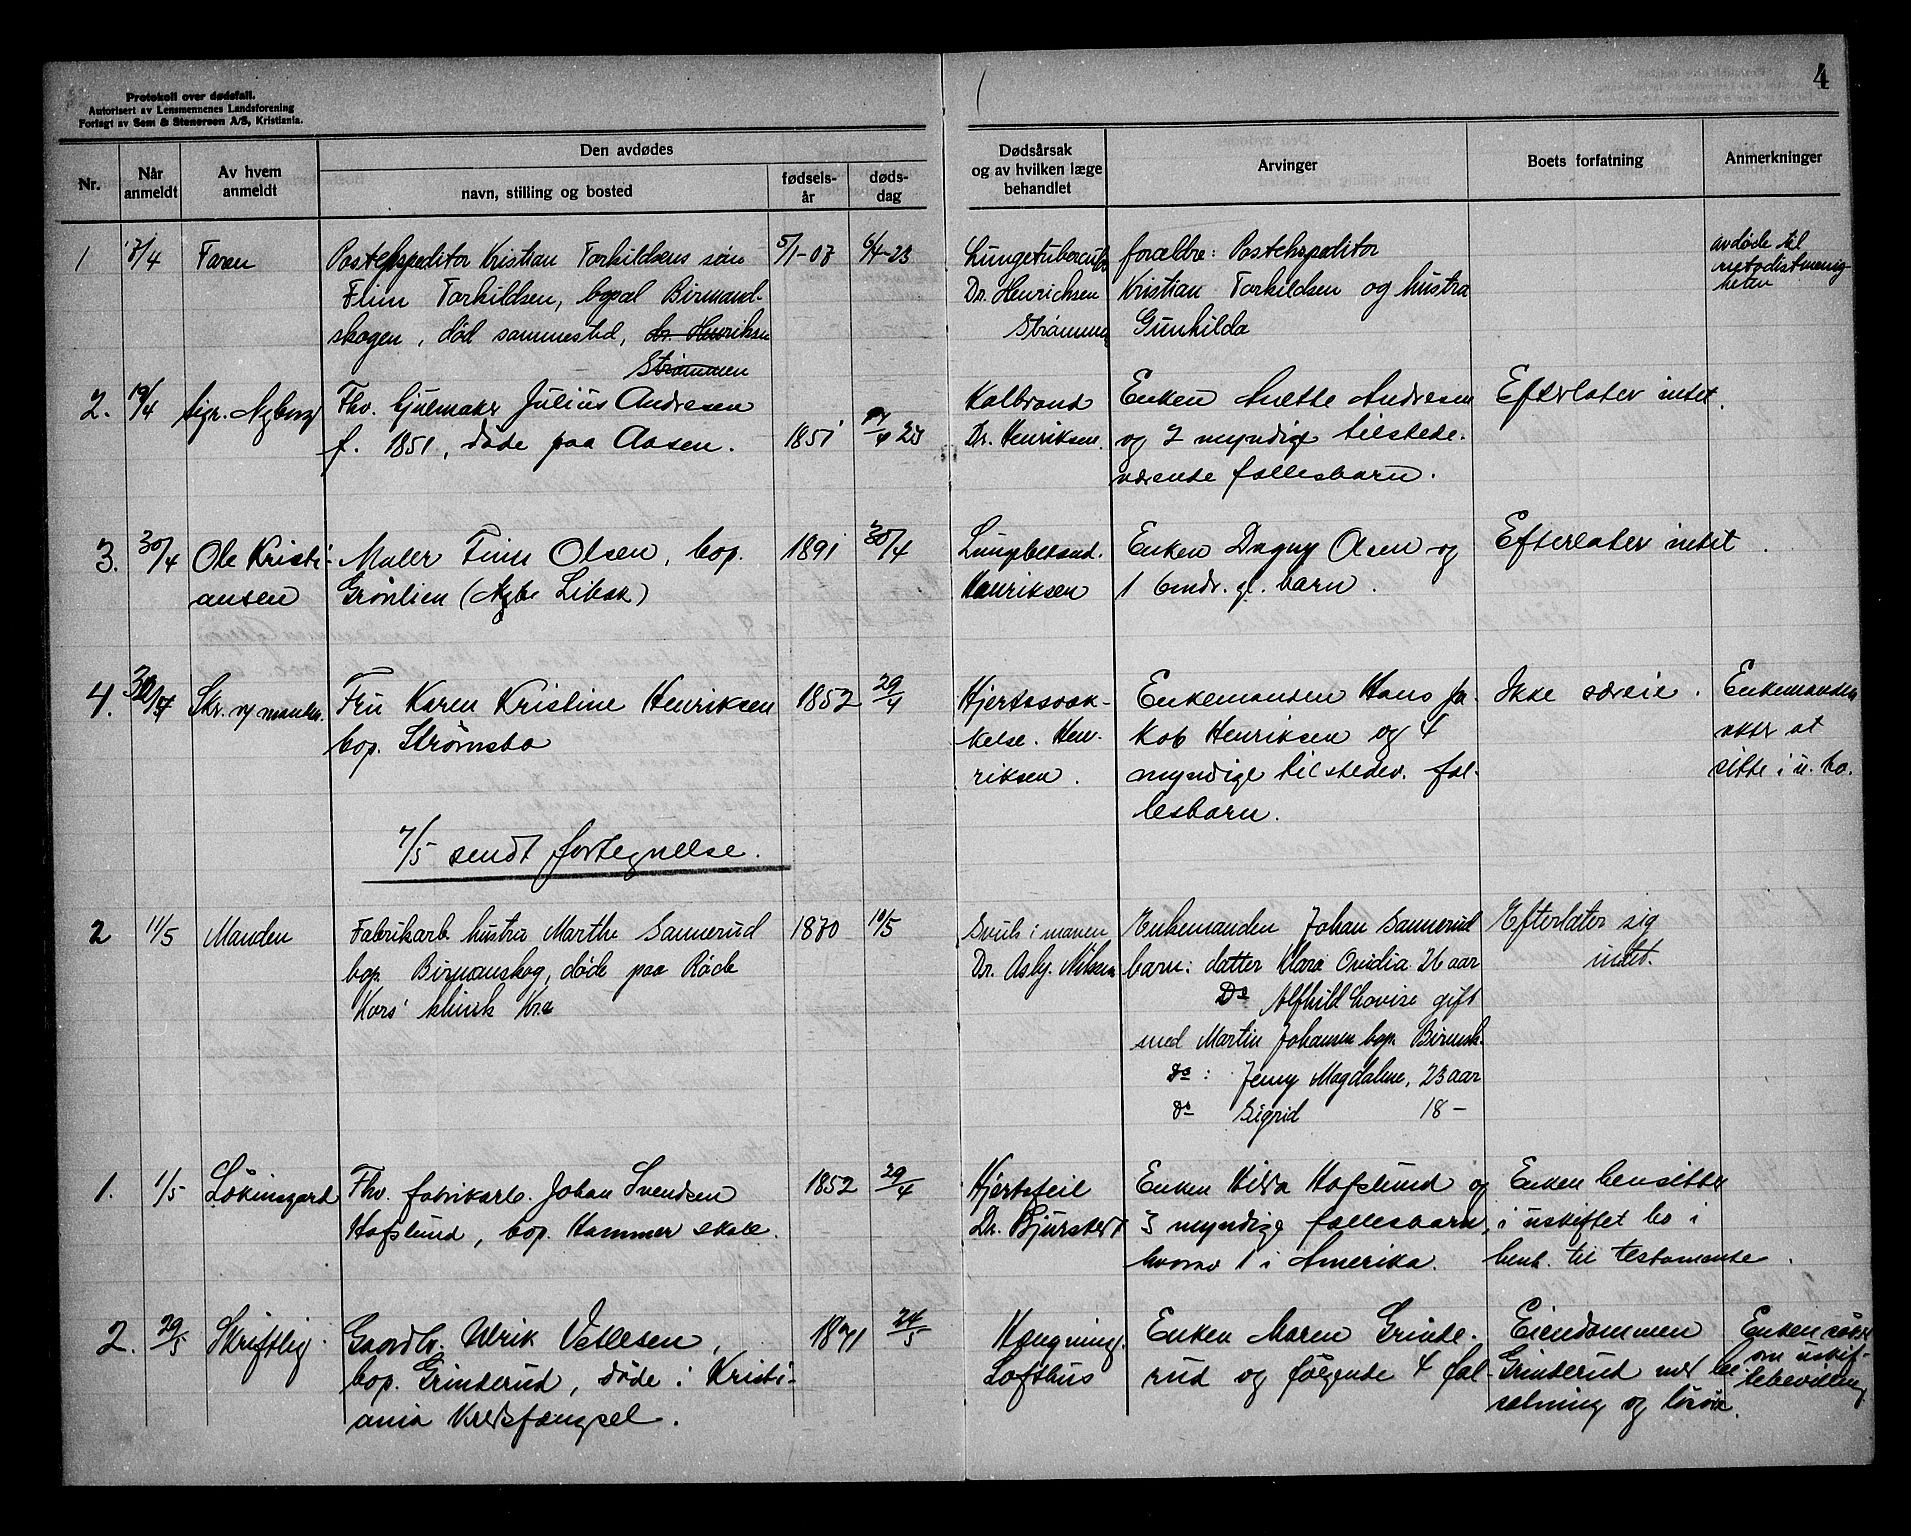 4
Protokoll over dødsfall.
Autorisert av Lensmennenes Landsforening
Forlagt av Sem & Stenersen A/S, Kristiania.
Nr.
Når anmeldt
Av hvem anmeldt
Den avdødes
navn, stilling og bosted
fødsels-år
døds-dag
Dødsårsak og av hvilken læge behandlet
Arvinger
Boets forfatning
Anmerkninger
1
7/4
Faren
Postekspeditor Kristian Torkildsens søn
Finn Torkildsen, bopal Birmand-
skogen, død sammested, dr. Henriksen
Strømmen
5/1-07
6/4-23
Lungetubercul.
Dr. Henrichsen
Strømmen
forældre: Postekspeditor
Kristian Torkildsen og hustru
Gunhilda
avdøde til
metodistmenig-
heten
2.
19/4
Sigr. Nyborg
Fhv. hjulmaker Julius Andresen
f. 1851, døde paa Aasen.
1851
Kolbrand
Dr. Henriksen
Enken Anette Andresen
og 2 myndige tilstede-
værende fællesbarn.
Efterlater intet.
3.
30/4
Ole Kristi-
ansen
Maler Finn Olsen, bop.
Grønlien
1891
30/4
Lungebetænd.
Henriksen
Enken Dagny Olsen og
1 6mdr. gl. barn.
Efterlater intet.
4.
30/4
Skr. av manden
Fru Karen Kristine Henriksen
bop. Strømsbo
1852
29/4
Hjertesvæk-
kelse. Hen-
riksen.
Enkemanden Hans Ja-
kob Henriksen og 4
myndige tilstedev. fæl-
lesbarn.
Ikke særeie.
Enkemanden
akter at
sitte i u. bo.
7/5 sendt fortegnelse.
2
11/5
Manden
Fabrikarb. hustru Marthe Sannerud
bop. Birmanskog, døde paa Røde
Kors' klinik Kra
1870
10/5
Svulst i maven
Dr. Asbj. Nilsen
Enkemanden Johan Sannerud
barn: datter Klara Ovidia 26 aar
Do Alfhild Lovise gift
med Martin Johansen bop. Birmsk.
do: Jenny Magdalene, 23 aar
do Sigrid 18 –
Efterlater sig
intet.
1.
1/5
Løkinsgard
Fhv. fabrikarb. Johan Svendsen
Hofslund, bop. Hammer skole.
1852
29/4
Hjertefeil
Dr. Bjurstedt
Enken Hilda Hofslund og
3 myndige fællesbarn,
hvorav 1 i Amerika.
Enken hensitter
i uskiftet bo i
henh. til testamente.
2.
29/5
Skriftlig
Gaardbr. Ulrik Vetlesen,
bop. Grinderud, døde i Kristi-
ania Kredsfængsel.
1871
24/5
Hængning.
Lofthus
Enken Maren Grinde-
rud og følgende 4 fæl-
Eiendommen
Grinderud med be
sætning og løsøre.
Enken søker
om uskif-
tebevilling